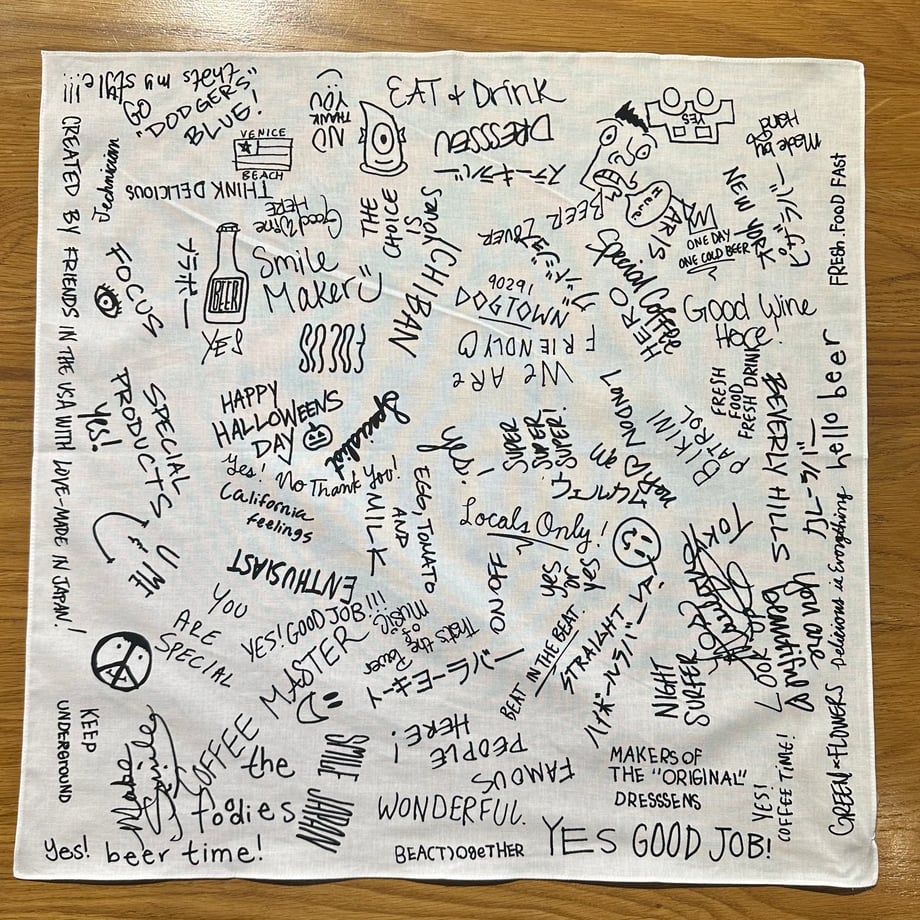 that's my style!!!
GO
"DODGERS"
BLUE!
CREATED BY FRIENDS IN THE USA WITH LOVE-MADE IN JAPAN!
Technician
VENICE
BEACH
THINK DELICIOUS
NO
THANK
YOU
EAT & Drink
DRESSSEN
ステーキラバー
YES
Made by
Hand
NEW YORK
ピザラバー
FRESH.FOOD FAST
Good Wine
HERE
THE
CHOICE
IS
YOURS
BEER
LOVER
ONE DAY
ONE COLD BEER
FOCUS
ブラボー
BEER
YES
Smile
Maker
FOCUS
ICHIBAN
90291
DOGTOWN
WE ARE
FRIENDLY
HERO
Special Coffee
Good Wine
Here.
FRESH
FOOD
FRESH DRINK
BEVERLY HILLS
カレーラバー
hello beer
HAPPY
HALLOWEENS
DAY
Specialist
Yes! No Thank You!
California
feelings
SPECIAL
PRODUCTS
Yes!
U & ME
MILK
EGG, TOMATO
AND
Yes!
SUPER
SUPER
SUPER!
BIKINI
PATROL
Locals Only!
ON OFF
yes
or
yes
ENTHUSIAST
YOU
ARE
SPECIAL
YES! GOOD JOB!!!
That's the
Power
of
music
コーヒーラバー
BEAT IN THE BEAT.
STRAIGHT
ハイボールラバー
NIGHT
SURFER
you are
beautiful
Delicious is Everything
KEEP
UNDERGROUND
Make
Smiles
COFFEE MASTER
the
foodies
SMILE JAPAN
FAMOUS
PEOPLE
HERE!
WONDERFUL.
MAKERS OF
THE "ORIGINAL"
DRESSSENS
YES!
COFFEE TIME!
GREEN & FLOWERS
Yes! beer time!
BEACTJOGETHER
YES GOOD JOB!